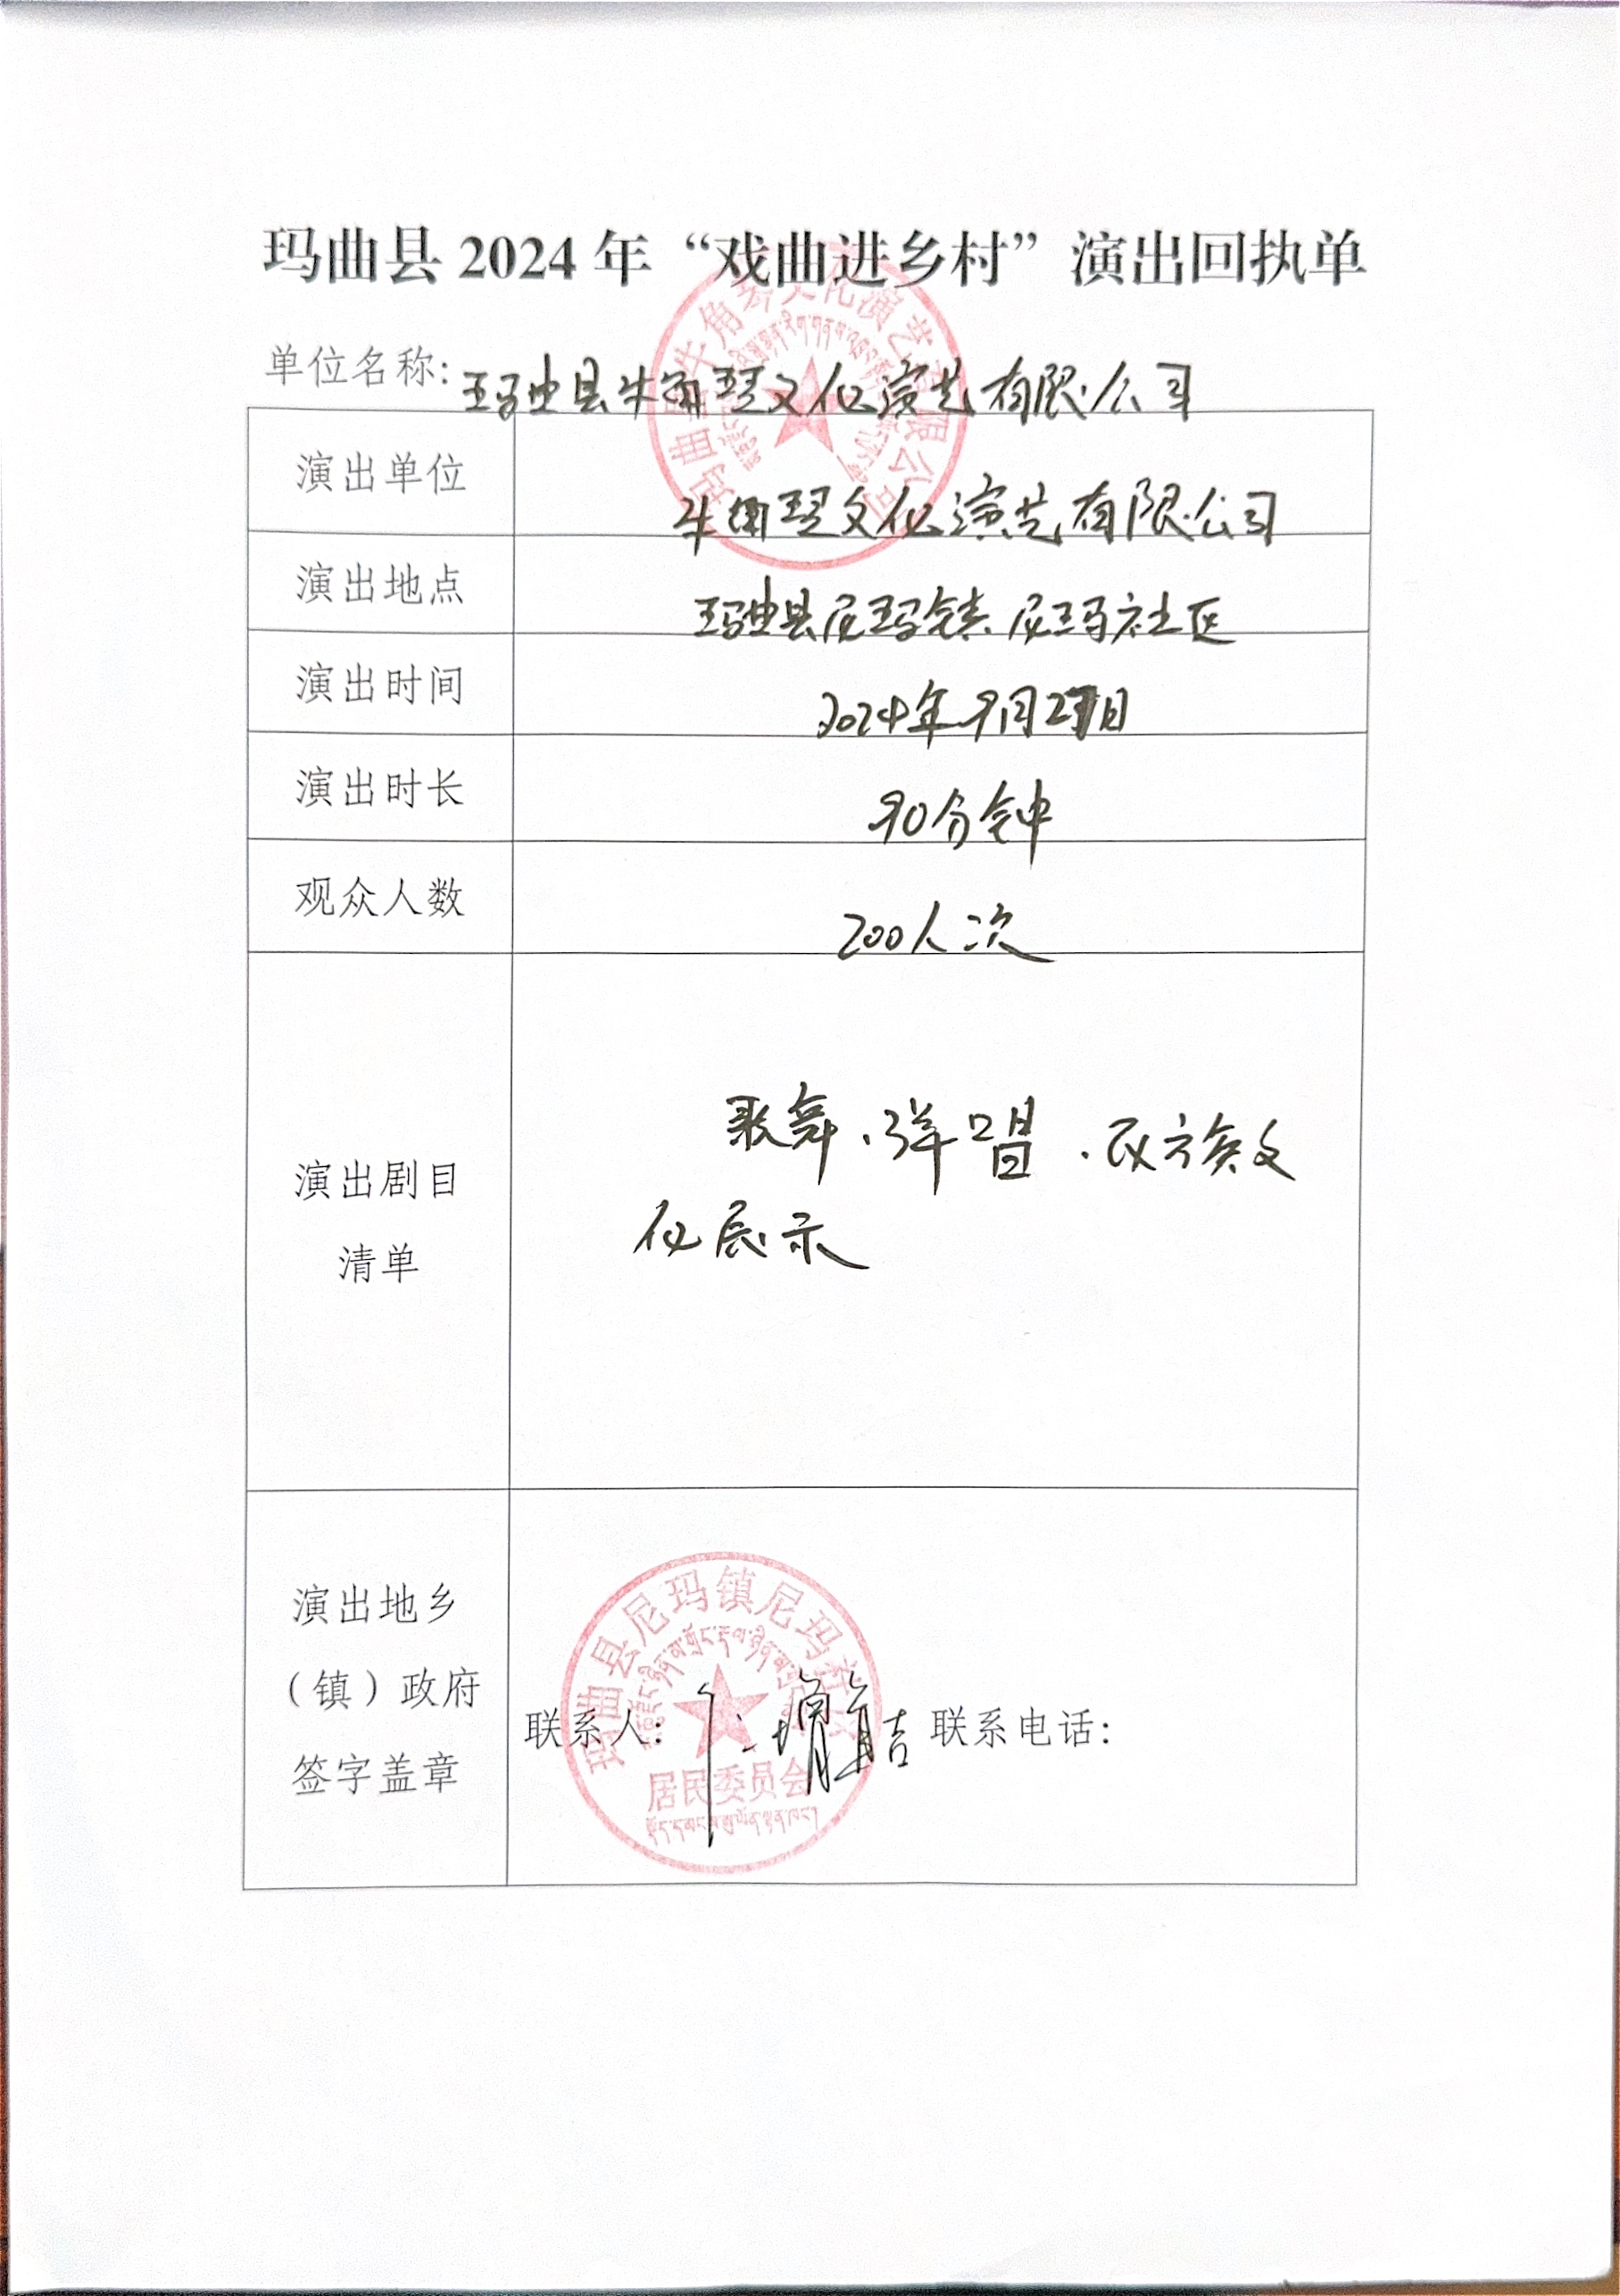 玛曲县 2024 年“戏曲进乡村”演出回执单
单位名称: 玛曲县牛角琴文化演艺有限公司
演出单位
牛角琴文化演艺有限公司
演出地点
玛曲县尼玛镇尼玛社区
演出时间
2024年9月27日
演出时长
90分钟
观众人数
200人次
演出剧目
清单
歌舞、弹唱、民族文
化展示
演出地乡
（镇）政府
签字盖章
联系人:
联系电话:
玛曲县牛角琴文化演艺有限公司
玛曲县尼玛镇尼玛社区
居民委员会